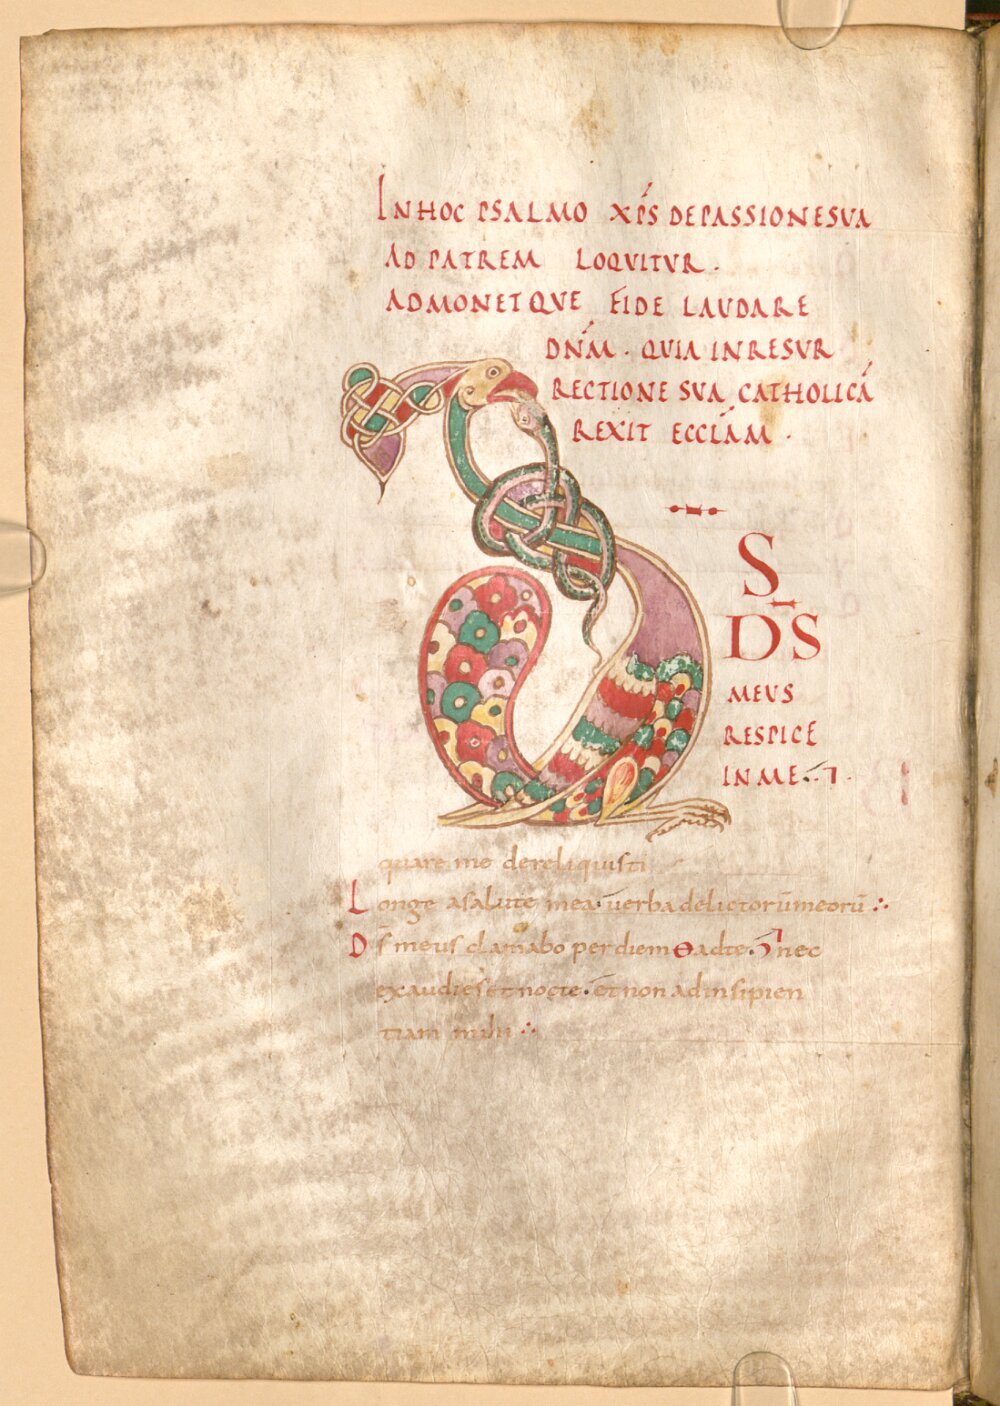 INHOC PSALMO XP̄S DEPASSIONESUA
AD PATREM LOQVITVR.
ADMONETQVE FIDE LAUDARE
DN̄M. QUIA INRESVR
RECTIONE SVA CATHOLICĀ
REXIT ECCLĀM.
D S
D̄S
MEVS
RESPICE
INME.
quare me dereliquisti
Longe asalute mea. uerba delictorūmeorū
D̄s meus clamabo perdiem adte. nec
exaudies et nocte. et non adinsipien
tiam mihi